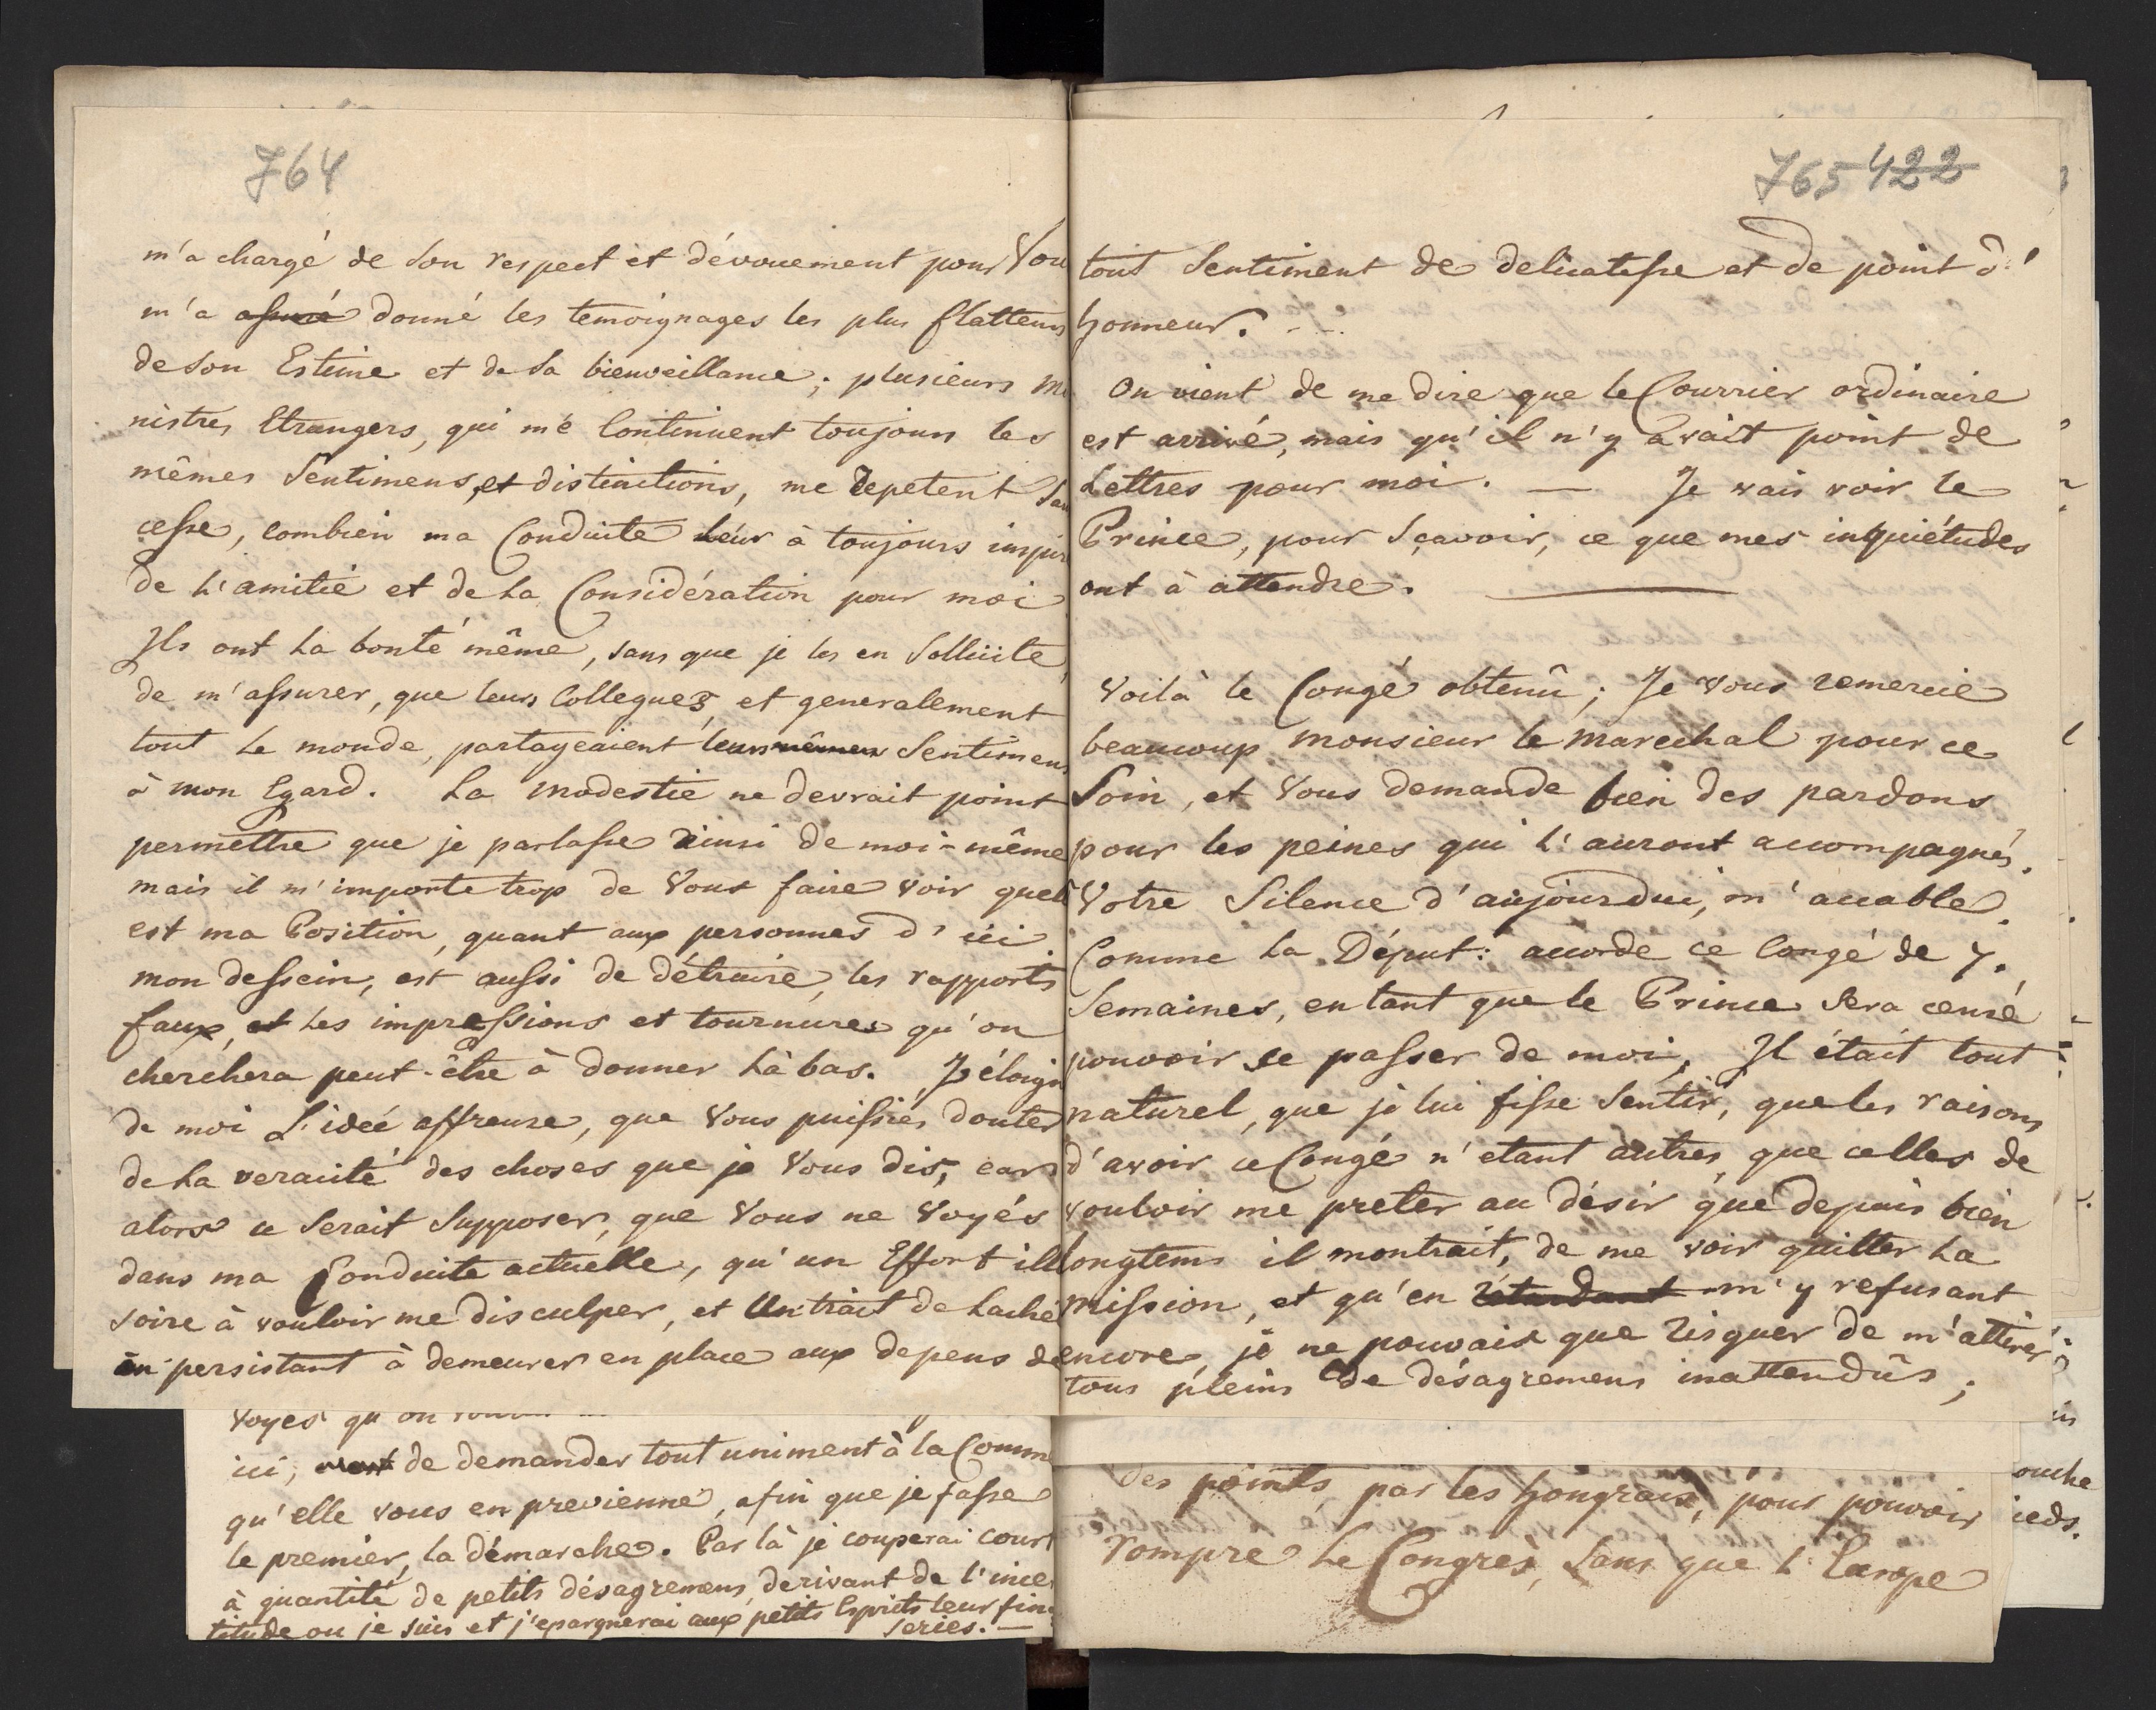 764
m'a chargé de son respect et dévouement pour Vou
m'a assuré donné les temoignages les plus flatteurs
de son Estime et de sa bienveillance; plusieurs Mi
nistres Etrangers, qui me Continuent toujours les
mêmes Sentimens, et distinctions, me repetent San
cesse, combien ma Conduite leur à toujours inspir
de l'amitié et de la Considération pour moi
Ils ont la bonté même, sans que je les en Sollicite,
de m'assurer, que leurs Collegues, et generalement
tout le monde, partageaient leurs mêmes Sentimens
à mon Egard. La modestie ne devrait point
permettre que je parlasse ainsi de moi-même
mais il m'importe trop de Vous faire voir quelle
est ma Position, quant aux personnes d'ici
mon dessein, est aussi de détruire, les rapports
faux, et les impressions et tournures qu'on
cherchera peut-être à donner là bas. J'éloign
de moi L'ideé affreuse, que Vous puissiés douter
de la veracité des choses que je Vous dis, car
alors ce Serait Supposer, que Vous ne Voyés
dans ma Conduite actuelle, qu'un Effort ill
soire à vouloir me disculper, et Un trait de Lacheé
en persistant à demeurer en place aux depens de
voyes qu'on
ici, de demander tout uniment à la Comm
qu'elle vous en previenne, afin que je fasse
le premier, la démarche. Par là je couperai court
à quantité de petits désagremens, derivant de l'ince
titude ou je suis et j'epargnerai aux petits Esprits leur fin
series. —
765 422
tout Sentiment de delicatesse et de point d'
honneur. . . .
On vient de me dire que le Courrier ordinaire
est arrivé, mais qu'il n'y avait point de
Lettres pour moi. — Je vais voir le
Prince, pour Sçavoir, ce que mes inquiétudes
ont à attendre. ———
Voilà le Congé obtenû; Je Vous remercie
beaucoup Monsieur le Marechal pour ce
Soin, et Vous demande bien des pardons
pour les peines qui l'auront accompagnés.
Votre Silence d'aujourdui, m'accable.
Comme la Déput: accorde ce Congé de 7.
Semaines, en tant que le Prince Sera censé
pouvoir se passer de moi, Il était tout
naturel, que je lui fisse Sentir, que les raisons
d'avoir ce Congé n'etant autres, que celles de
vouloir me preter au désir que depuis bien
longtems il montrait, de me voir quitter la
Mission, et qu'en rétardant m'y refusant
encore, je ne pouvais que risquer de m'attirer
tous pleins de désagremens inattendûs;
des points, par les hongrais, pour pouvoir
rompre le Congrès, Sans que l'Europe
ouche
ieds.